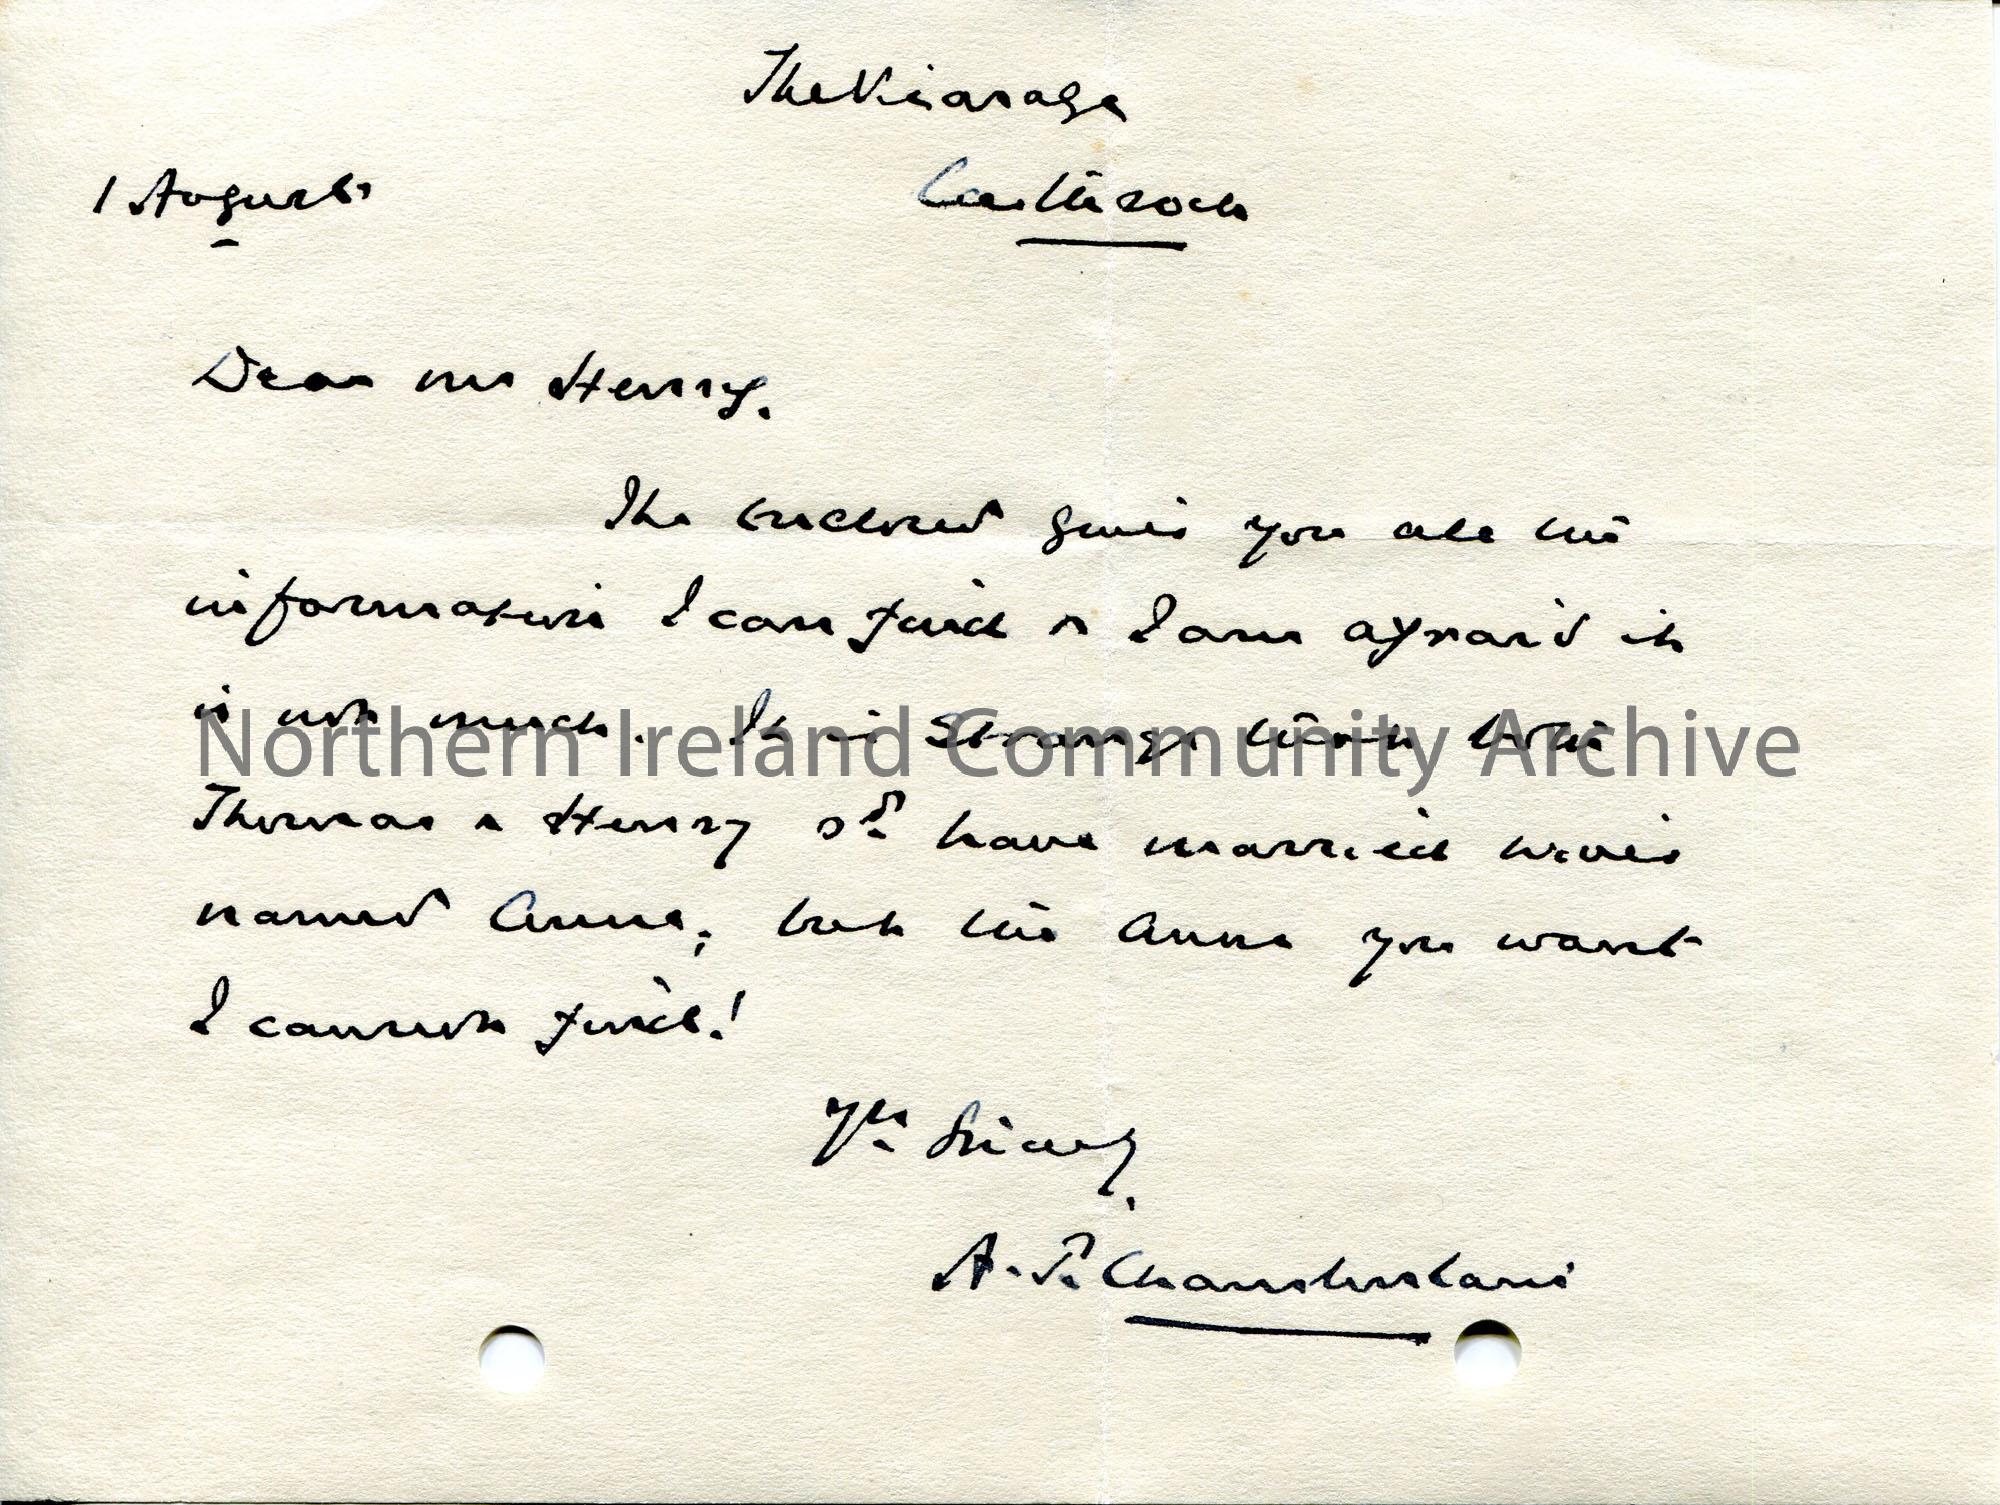 The Vicarage
1 August
Castlerock
Dear Mr Henry.
The enclosed gives you all the
information I can find & I am afraid it
is not much. It is strange that both
Northern Ireland Community Archive
Thomas & Henry sd have married wives
named Anne; but the Anne you want
I cannot find!
Yrs Sincerely,
A. P. Chamberlain